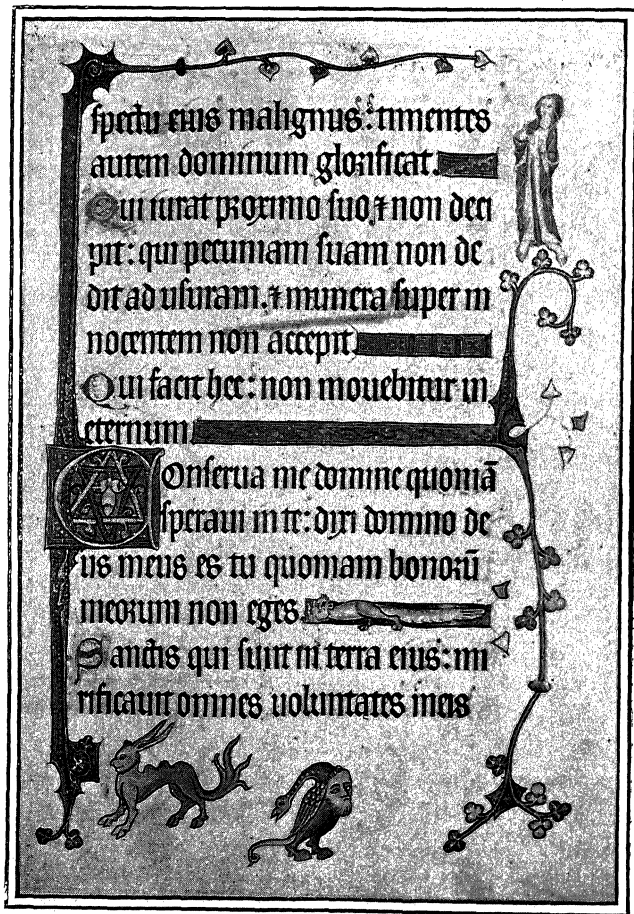 spectu eius malignus: timentes
autem dominum glorificat.
Qui iurat proximo suo ⁊ non deci
pit: qui pecuniam suam non de
dit ad usuram. ⁊ munera super in
nocentem non accepit
Qui facit hec: non mouebitur in
eternum
Conserua me domine quoniā
speraui in te: dixi domino de
us meus es tu quoniam bonorū
meorum non eges
Sanctis qui sunt in terra eius: mi
rificauit omnes uoluntates meas